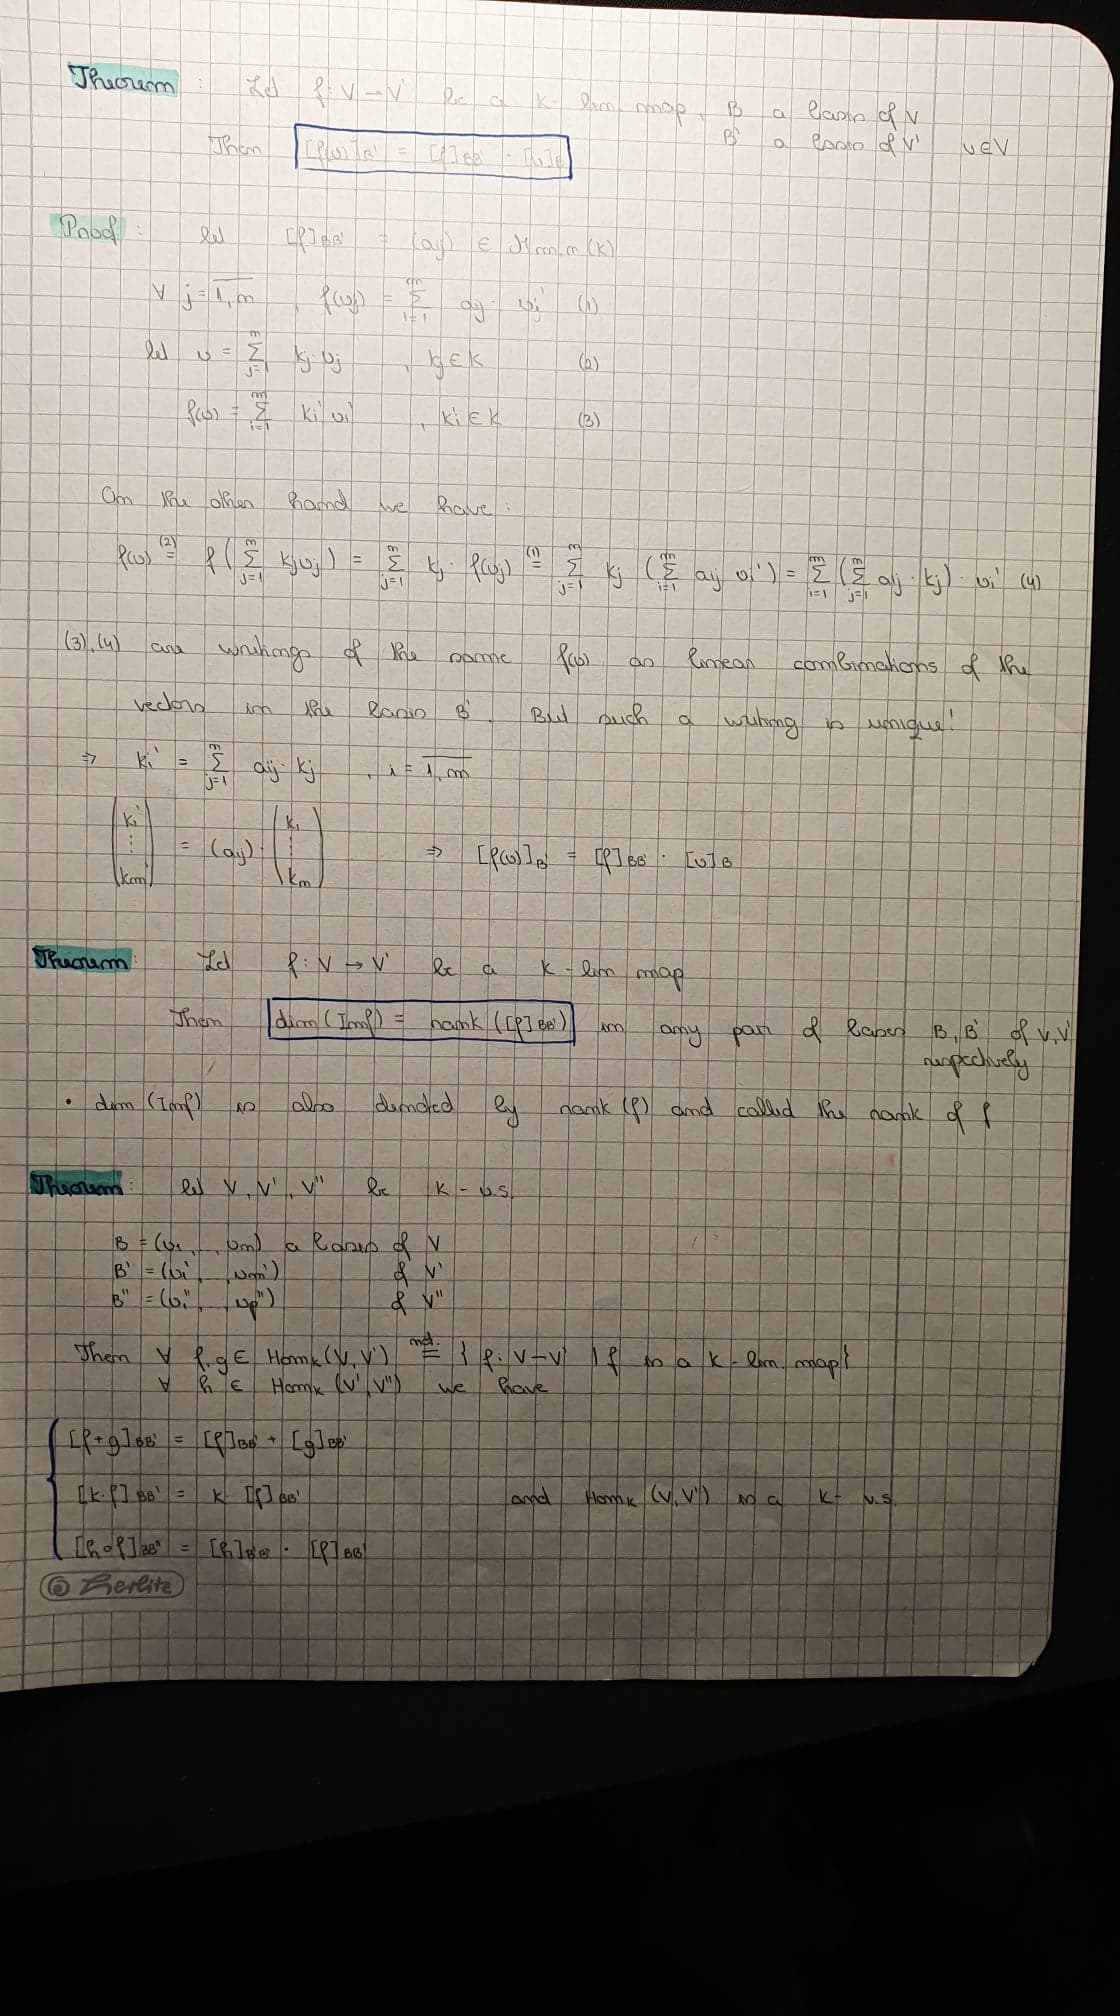 Theorem : Let f: V → V' be a K-lin. map, B a basis of V
B' a basis of V' v∈V
Then [f(v)]B' = [f]BB' · [v]B
Proof : let [f]BB' = (aij) ∈ Mm,n(K)
∀ j = 1,n , f(vj) = Σ i=1 m aij · vi' (1)
let v = Σ j=1 n kj·vj , kj∈K (2)
f(v) = Σ i=1 m ki' vi' , ki'∈K (3)
On the other hand we have :
f(v) (2)= f(Σ j=1 n kjvj) = Σ j=1 n kj · f(vj) (1)= Σ j=1 n kj (Σ i=1 m aij vi') = Σ i=1 m (Σ j=1 n aij · kj) · vi' (4)
(3), (4) are writings of the same f(v) as linear combinations of the
vectors in the basis B'. But such a writing is unique!
⇒ ki' = Σ j=1 n aij · kj , i = 1,m
(k1' ⋮ km') = (aij) · (k1 ⋮ kn) ⇒ [f(v)]B' = [f]BB' · [v]B
Theorem : Let f: V → V' be a K-lin map
Then dim(Imf) = rank([f]BB') in any pair of bases B, B' of V, V'
respectively
• dim(Imf) is also denoted by rank(f) and called the rank of f
Theorem : let V, V', V'' be K-v.s.
B = (v1, .., vn) a bases of V
B' = (v1', , vm') of V'
B'' = (v1'', , vp'') of V''
Then ∀ f,g ∈ HomK(V,V') not.= { f: V→V' | f is a K-lin. map}
∀ h ∈ HomK(V',V'') we have
[f+g]BB' = [f]BB' + [g]BB'
[k·f]BB' = k · [f]BB' and HomK(V,V') is a K- v.s.
[h∘f]BB'' = [h]B'B'' · [f]BB'
© Herlitz